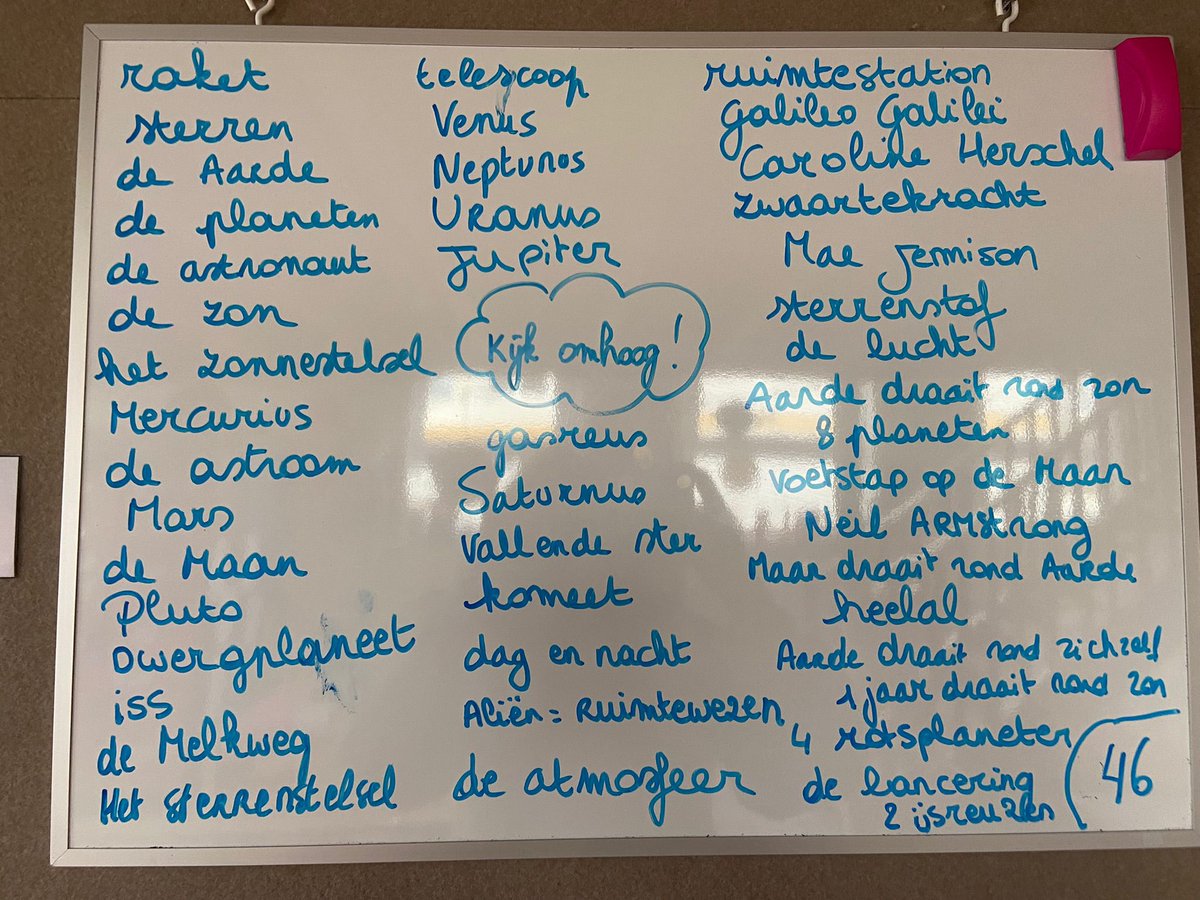 raket
sterren
de Aarde
de planeten
de astronaut
de zon
het zonnestelsel
Mercurius
de astroom
Mars
de Maan
Pluto
Dwergplaneet
iss
de Melkweg
Het sterrenstelsel
telescoop
Venus
Neptunos
Uranus
Jupiter
Kijk omhoog!
gasreus
Saturnus
Vallende ster
komeet
dag en nacht
Aliën = Ruimtewezen
de atmosfeer
ruimtestation
Galileo Galilei
Caroline Herschel
zwaartekracht
Mae Jemison
sterrenstof
de lucht
Aarde draait rond zon
8 planeten
voetstap op de Maan
Neil ARMstrong
Maan draait rond Aarde
heelal
Aarde draait rond zichzelf
1 jaar draait rond zon
4 rotsplaneten
de lancering
2 ijsreuzen
46